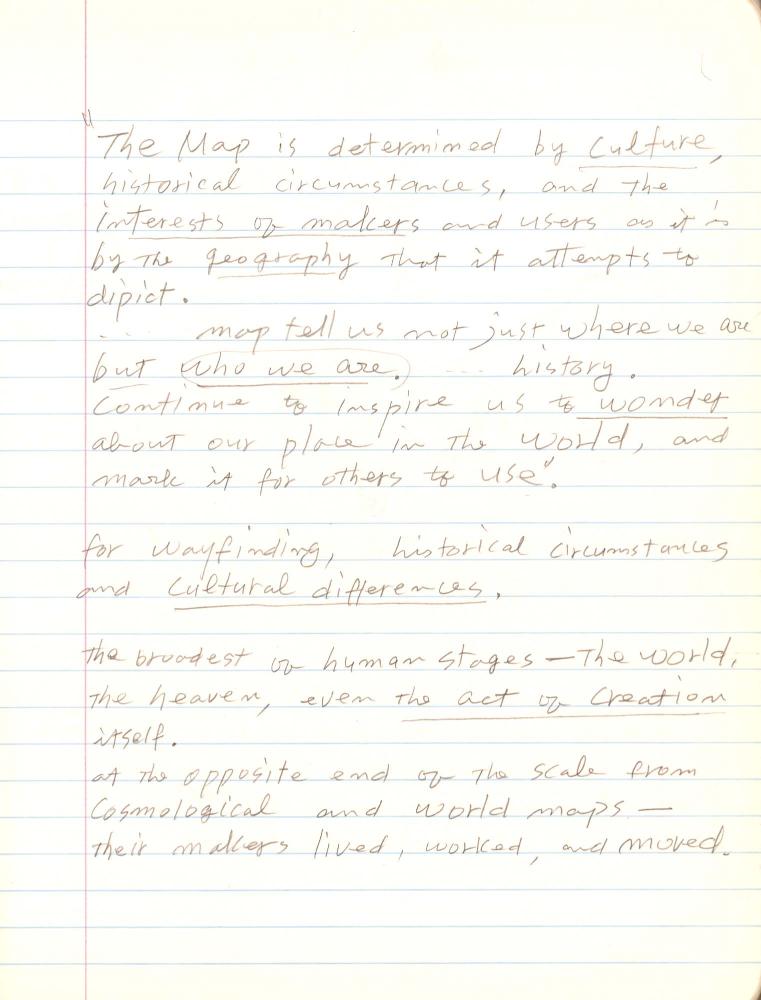 "The Map is determined by Culture,
historical circumstances, and the
interests of makers and users as it is
by the geography that it attempts to
dipict.
.. ... map tell us not just where we are
but who we are. .... history.
Continue to inspire us to wonder
about our place in the world, and
mark it for others to use".
for wayfinding, historical circumstances
and Cultural differences.
the broadest of human stages — The world,
the heaven, even the act of Creation
itself.
at the opposite end of the scale from
Cosmological and world maps —
their makers lived, worked, and moved.